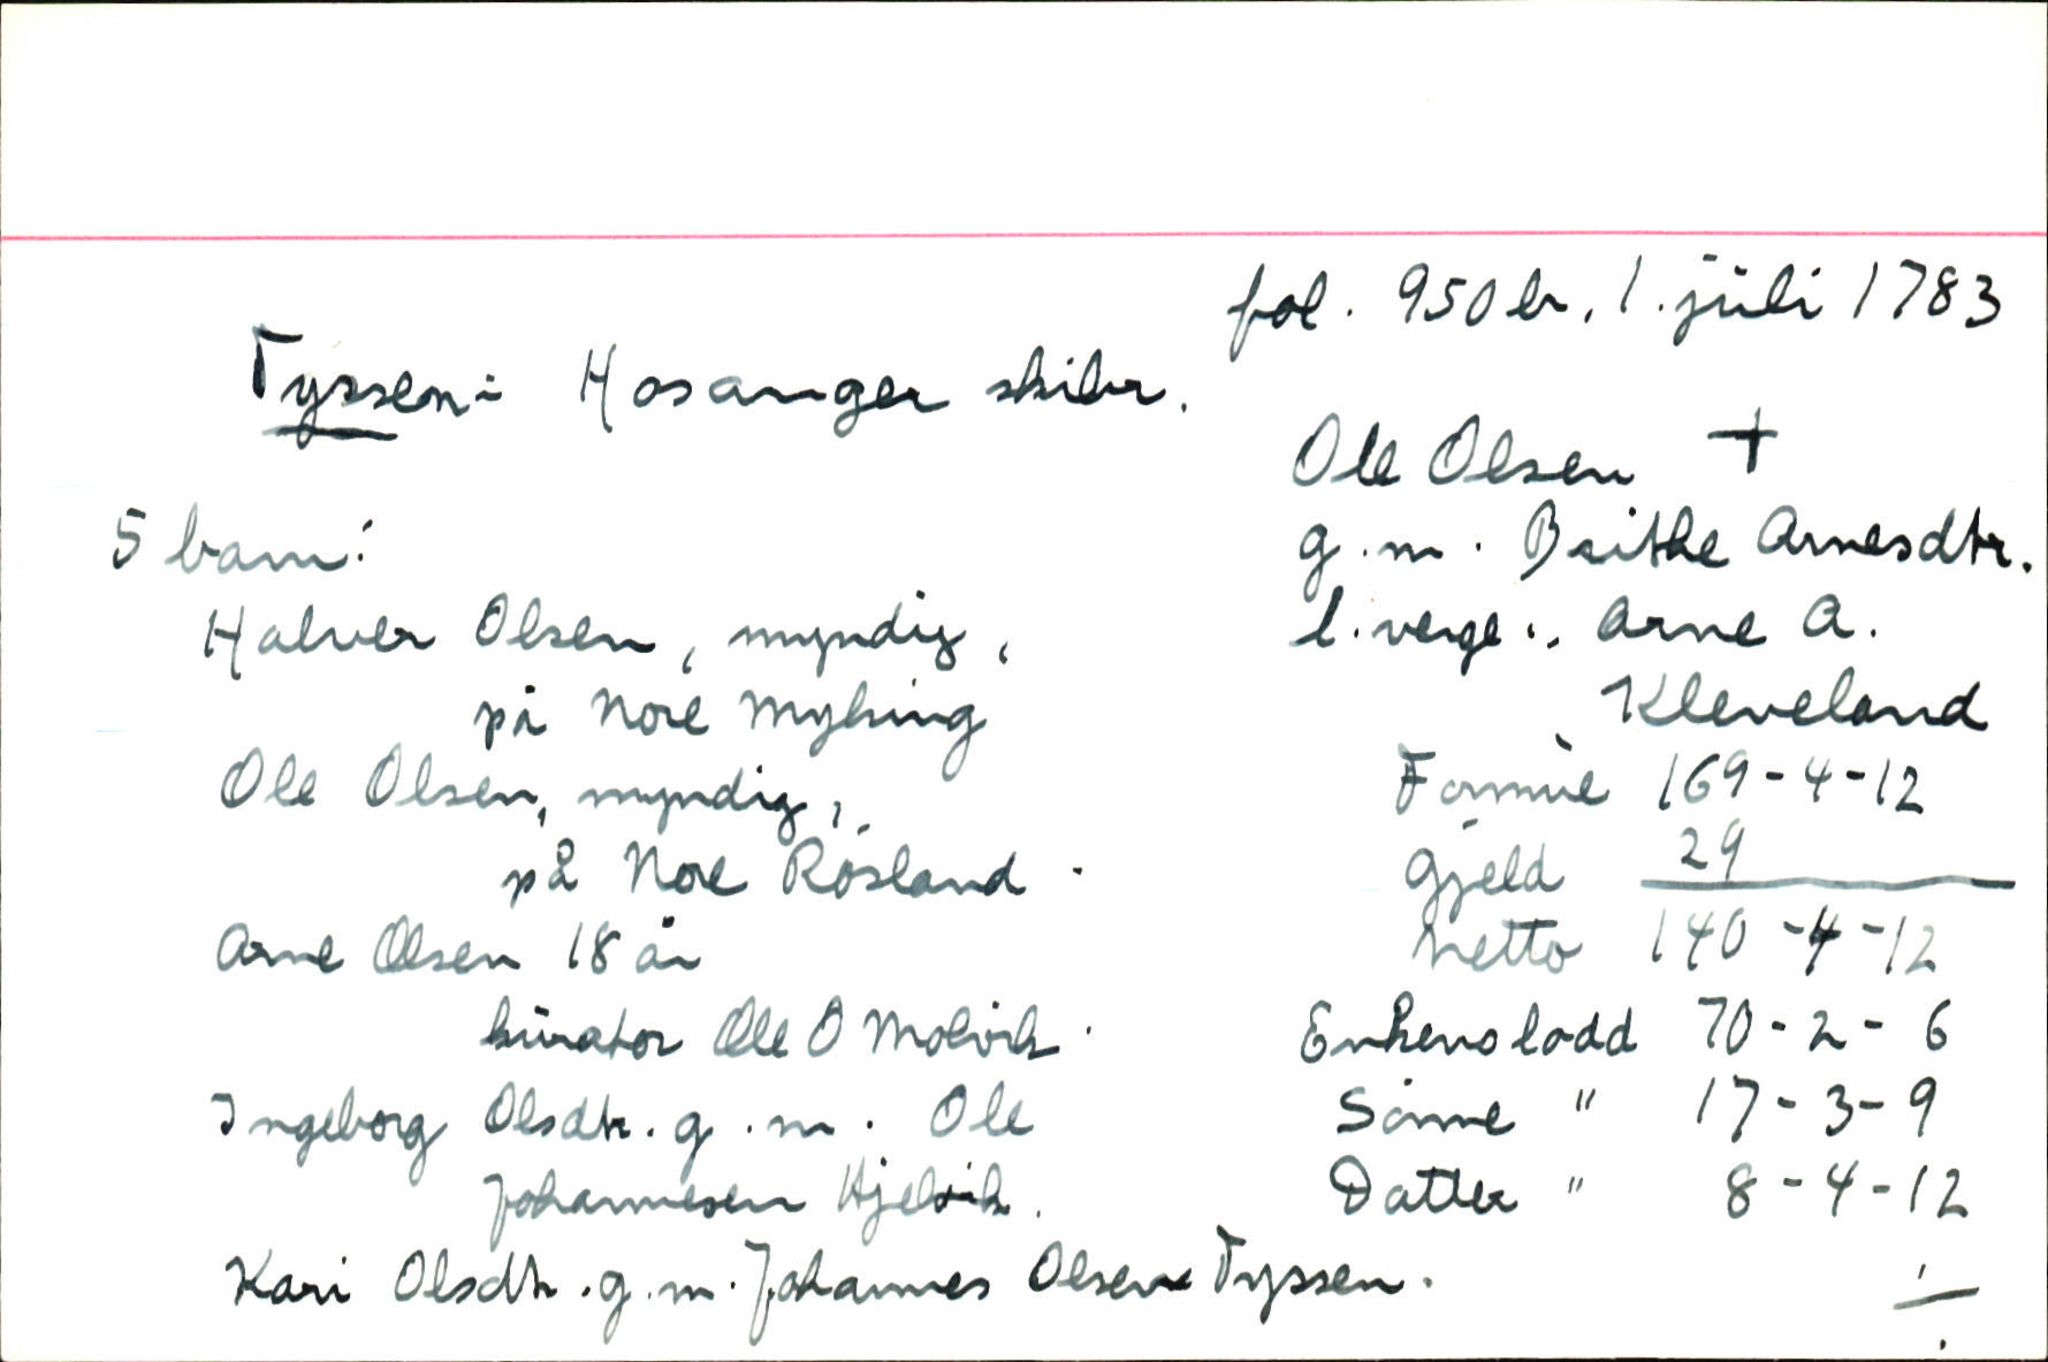 fol. 950 b, 1. juli 1783
Tyssen i Hosanger skibr.
Ole Olsen +
g. m. Brithe Arnesdtr.
l. verge: Arne A.
Kleveland
5 barn:
Halver Olsen, myndig,
på Nore Myking
Ole Olsen, myndig,
på Nore Røsland.
Arne Olsen 18 år
kurator Ole O Molvik.
Ingeborg Olsdtr. g. m. Ole
Johannesen Hjelvik.
Kari Olsdtr. g. m. Johannes Olsen Tyssen.
Formue 169-4-12
Gjeld 29
Netto 140-4-12
Enkens lodd 70-2-6
Sønne " 17-3-9
Datter " 8-4-12